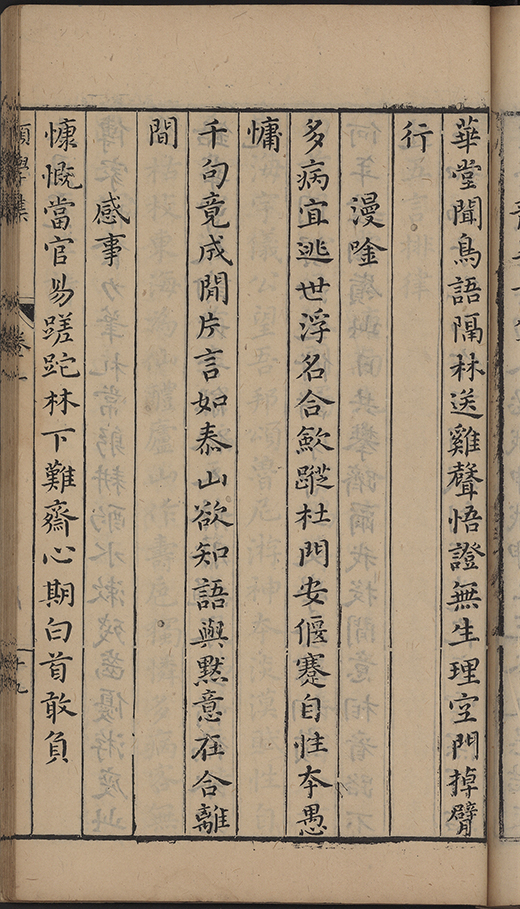 華堂聞鳥語隔林送雞聲悟證無生理空門掉臂
行
漫唫
多病宜逃世浮名合歛蹤杜門安偃蹇自性本愚
慵
千句竟成閒片言如泰山欲知語與默意在合離
間
感事
慷慨當官易蹉跎林下難齋心期白首敢負
學集
卷一
十九